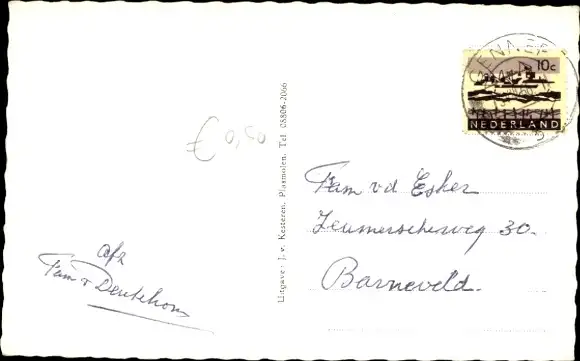 10c
NEDERLAND
€ 0,50
Fam vd Esker
Zeumerscheweg 30.
Barneveld.
afz
Fam v Deutekom
Uitgave: J. v. Kesteren, Plasmolen. Tel. 08806-2066